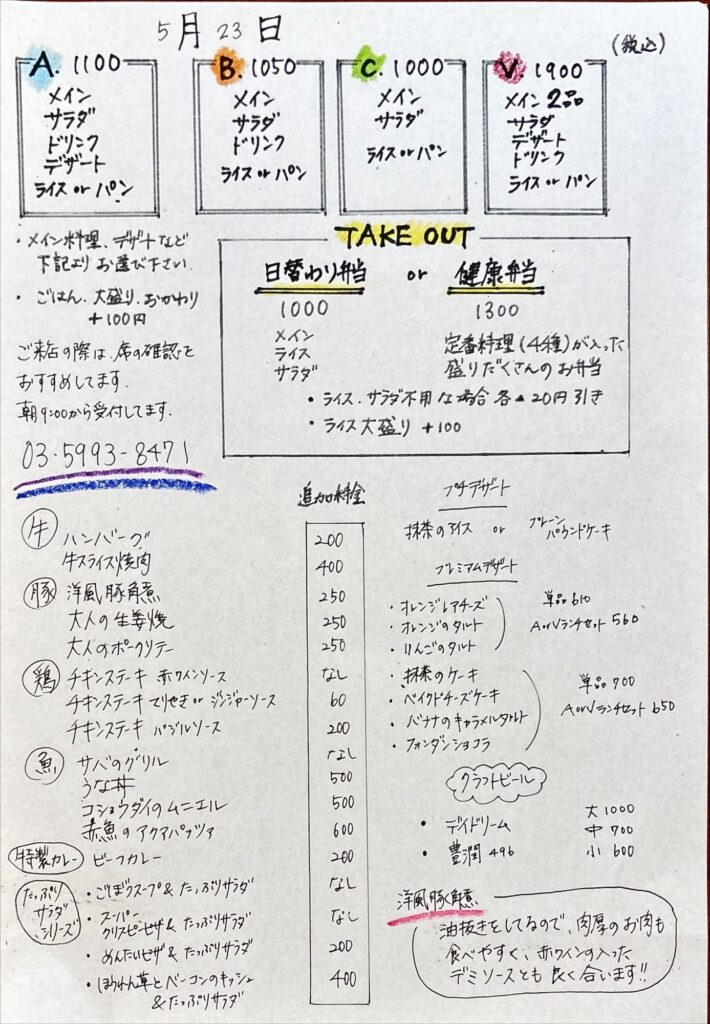 5月23日
(税込)
A. 1100
メイン
サラダ
ドリンク
デザート
ライス or パン
B. 1050
メイン
サラダ
ドリンク
ライス or パン
C. 1000
メイン
サラダ
ライス or パン
V. 1900
メイン 2品
サラダ
デザート
ドリンク
ライス or パン
・メイン料理、デザートなど
下記よりお選び下さい
・ごはん、大盛り、おかわり
+100円
ご来店の際は、席の確認を
おすすめしてます.
朝9:00から受付してます.
03-5993-8471
TAKE OUT
日替わり弁当 or 健康弁当
1000
メイン
ライス
サラダ
1300
定番料理(4種)が入った
盛りだくさんのお弁当
・ライス、サラダ不用な場合 各▲20円引き
・ライス大盛り +100
追加料金
牛
ハンバーグ 200
牛スライス焼肉 400
豚
洋風豚角煮 250
大人の生姜焼 250
大人のポークソテー 250
鶏
チキンステーキ 赤ワインソース なし
チキンステーキ てりやき or ジンジャーソース 60
チキンステーキ バジルソース 200
魚
サバのグリル なし
うな丼 500
コショウダイのムニエル 500
赤魚のアクアパッツァ 600
特製カレー ビーフカレー 200
たっぷり
サラダ
シリーズ
・ごぼうスープ & たっぷりサラダ なし
・スーパー
クリスピーピザ & たっぷりサラダ なし
・めんたいピザ & たっぷりサラダ 200
・ほうれん草とベーコンのキッシュ
& たっぷりサラダ 400
プチデザート
抹茶のアイス or プレーン
パウンドケーキ
プレミアムデザート
・オレンジレアチーズ
・オレンジのタルト
・りんごのタルト
単品 610
A or Vランチセット 560
・抹茶のケーキ
・ベイクドチーズケーキ
・バナナのキャラメルタルト
・フォンダンショコラ
単品 700
A or Vランチセット 650
クラフトビール
・デイドリーム
・豊潤 496
大 1000
中 700
小 600
洋風豚角煮
油抜きをしてるので、肉厚のお肉も
食べやすく、赤ワインの入った
デミソースとも良く合います!!